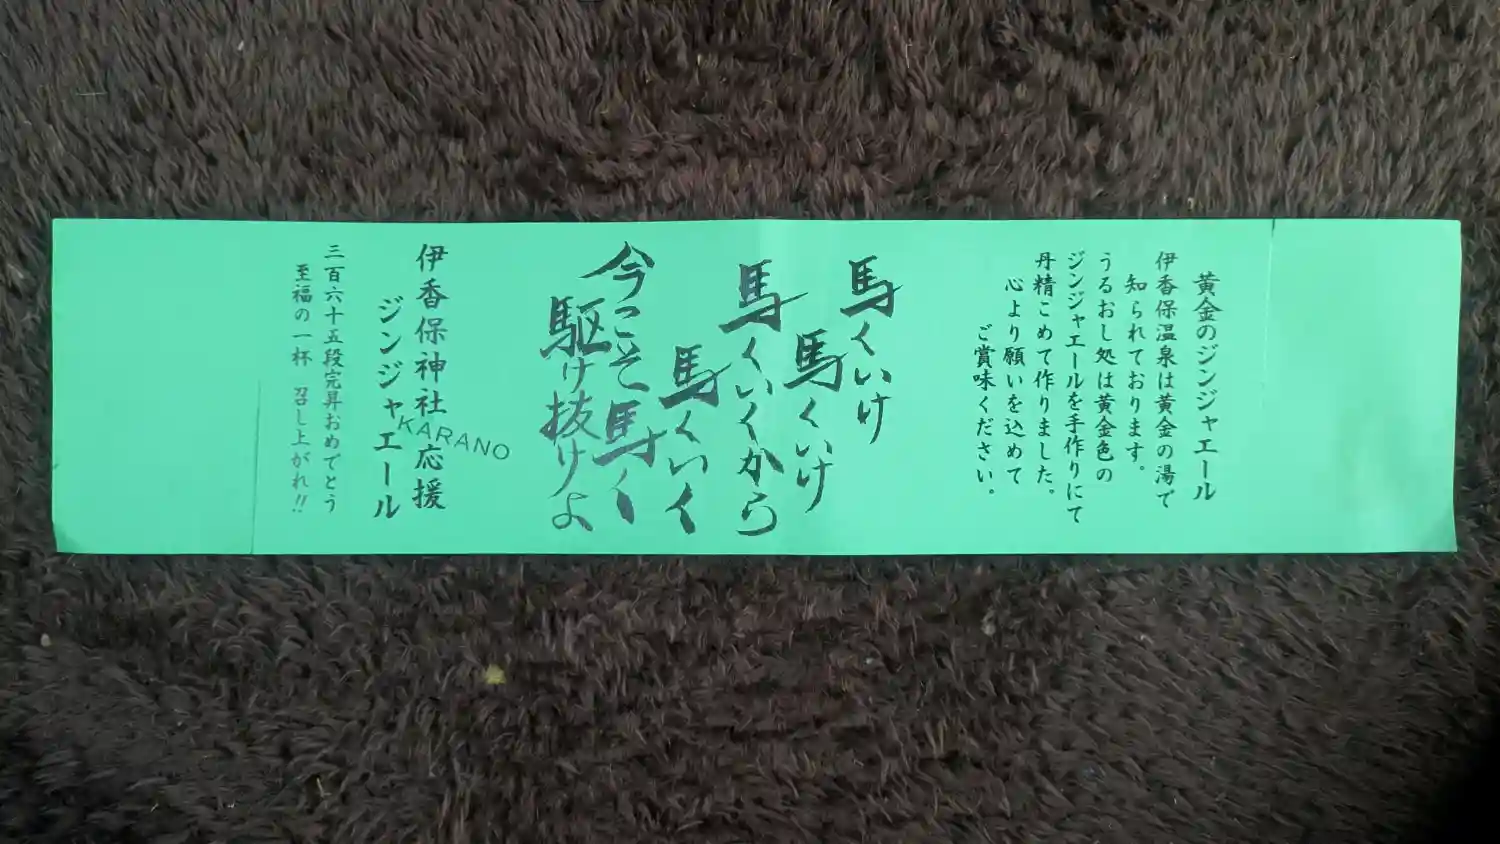 黄金のジンジャエール
伊香保温泉は黄金の湯で
知られております。
うるおし処は黄金色の
ジンジャエールを手作りにて
丹精こめて作りました。
心より願いを込めて
ご賞味ください。
馬くいけ
馬くいけ
馬くいくから
馬くいく
今こそ馬く
駆け抜けよ
伊香保神社応援
ジンジャエール
KARANO
三百六十五段完昇おめでとう
至福の一杯 召し上がれ!!